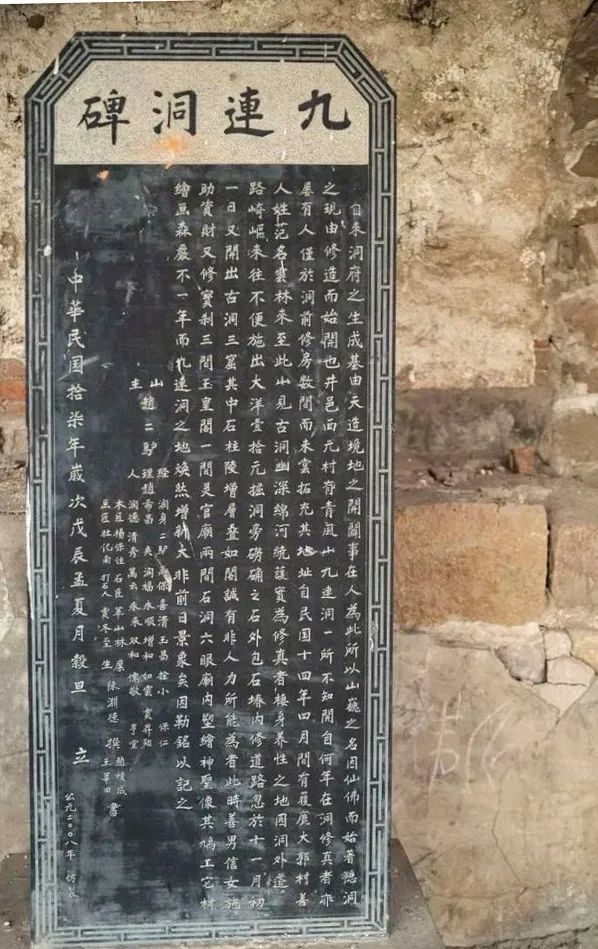 九連洞碑
自来洞府之生成基由天造境地之開闢事在人為此所以山巍之名因仙佛而始著隱洞
之現由修造而始開也井邑西元村有青風山九連洞一所不知開自何年在洞修真者亦
屢有人僅於洞前修房数間而未雲拓充其地址自民国十四年四月間有獲鹿大郭村善
人姓范名雲林来至此山見古洞幽深綿河繞護實為修真者棲身养性之地因洞外邊
路崎嶇来往不便施出大洋壹拾元掘洞旁磅确之石外包石墻内修道路忽於十一月初
一日又開出古洞三窟其中石柱陵增層叠如閣誠有非人力所能為者此時善男信女施
助資財又修寶刹三間玉皇閣一間灵官廟兩間石洞六眼廟内塑繪神聖像其鳩工它材
繪画森嚴不一年而九連洞之地焕然增新大非前日景象矣因勒銘以記之
山主 趙二馿 経理人
木匠楊保住 石匠
画匠杜化南 打石人
陳淵德 撰
書
中華民国拾柒年歲次戊辰孟夏月穀旦 立
公元二00八年 仿製